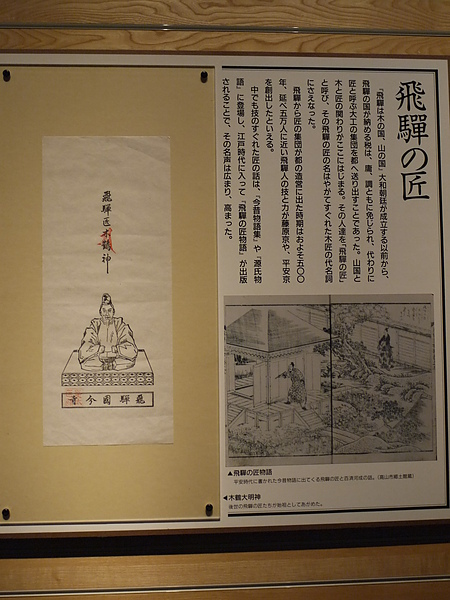 飛騨の匠
「飛騨は木の国、山の国」大和朝廷が成立する以前から、
飛騨の国が納める税は、庸、調ともに免じられ、代わりに
匠と呼ぶ大工の集団を都へ送り出すことであった。山国と
木と匠の関わりがここにはじまる。その人達を「飛騨の匠」
と呼び、その飛騨の匠の名はやがてすぐれた木匠の代名詞
にさえなった。
飛騨から匠の集団が都の造営に出た時期はおよそ五〇〇
年、延べ五万人に近い飛騨人の技と力が藤原京や、平安京
を創出したといえる。
中でも技のすぐれた匠の話は、「今昔物語集」や「源氏物
語」に登場し、江戸時代に入って「飛騨の匠物語」が出版
されることで、その名声は広まり、高まった。
飛騨匠木鶴神
飛騨國今寺
▲飛騨の匠物語
平安時代に書かれた今昔物語に出てくる飛騨の匠と百済河成の話。(高山市郷土館蔵)
◀木鶴大明神
後世の飛騨の匠たちが始祖としてあがめた。